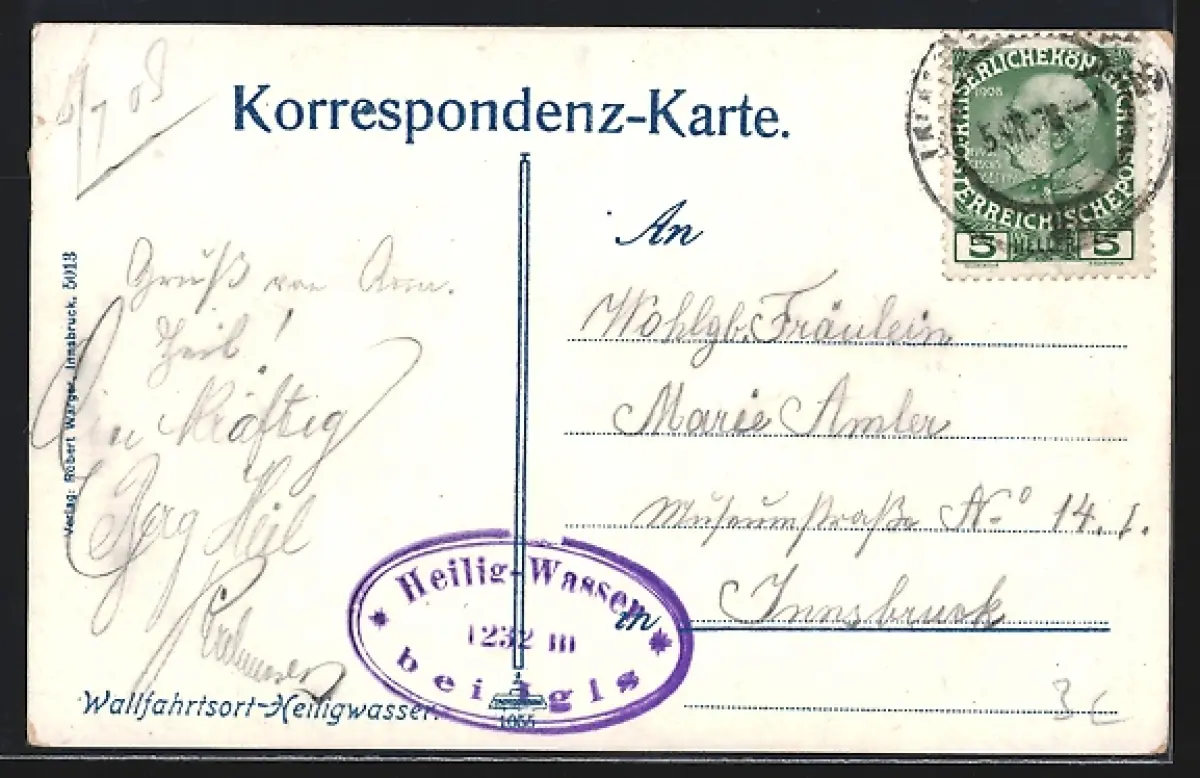 Korrespondenz-Karte.
An
Verlag: Robert Warger, Innsbruck. 5013
Gruß von Ann.
Heil!
Ein kräftig
Berg Heil
Wohlgb. Fräulein
Marie Amler
Museumstraße No 14. I.
in Innsbruck
Wallfahrtsort-Heiligwasser.
1055
Heilig-Wasser
1232 m
bei Igls
KAISERLICHEKÖNIGLICHE
ÖSTERREICHISCHEPOST
1908
5 HELLER 5
5.VII.
3c